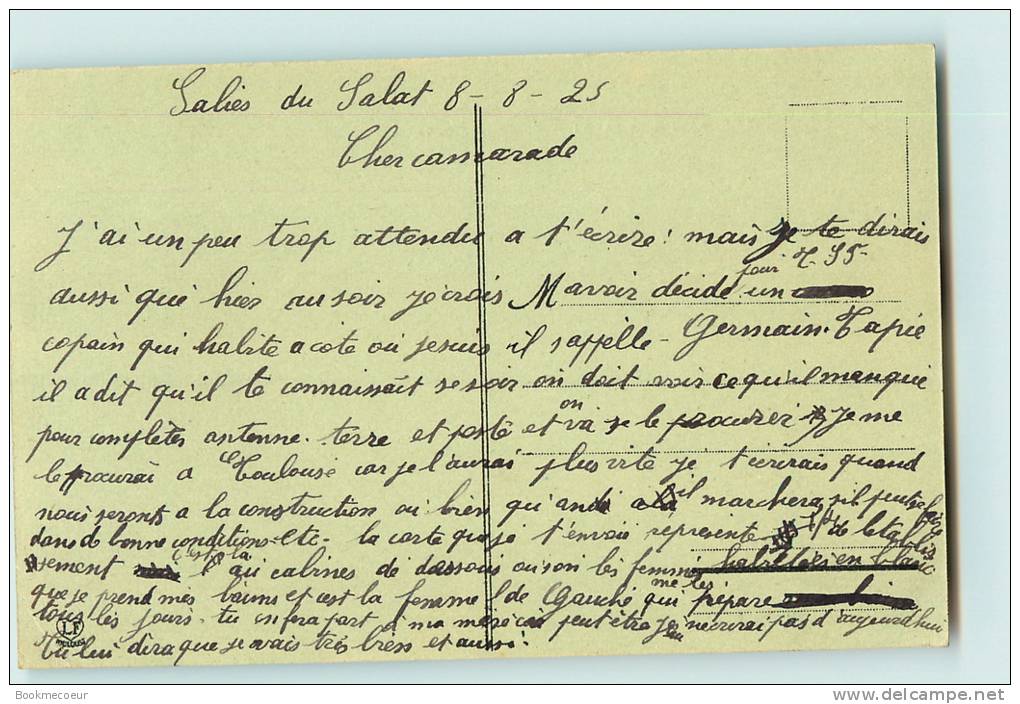 Salies du Salat 8 - 8 - 25
Cher camarade
J'ai un peu trop attendu a t'écrire! mais je te dirais
aussi que hier au soir je crois M avoir décidé pour un T. S F.
copain qui habite a cote ou je suis il s'appelle - Germain. Tapie
il a dit qu'il te connaissait se soir on doit voir ce qu'il manque
pour complètes antenne. terre et poste et on va se le procurer Je me
le procurai a Toulouse car je l'aurai plus vite je t'écrirais quand
nous seronts a la construction ou bien quand il marchera s'il peut
dans de bonne conditions - etc - la carte que je t'envoie represente l'établis
sement c'est la qui cabines de dessous ou son les femme habillées en blanc
que je prend mes bains et c'est la femme de Gauche qui me les prépare
tous les jours. tu en fera part a ma mere car peut être je n'ecrirai pas d'aujourd'hui
Tu lui dira que je vais très bien et aussi!
LF
Bookmecoeur
delcampe.net